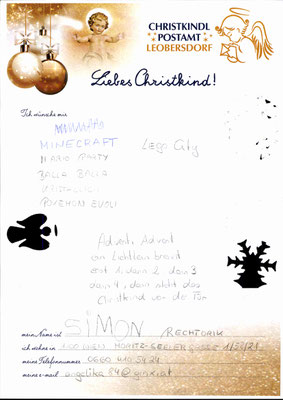 CHRISTKINDL
POSTAMT
LEOBERSDORF
Liebes Christkind!
Ich wünsche mir
MINECRAFT
Lego City
MARIO PARTY
BALLA BALLA
POKEMON EVOLI
Advent, Advent
ein Lichtlein brennt
erst 1, dann 2, dann 3
dann 4, dann steht das
Christkind vor der Tür
mein Name ist SIMON RECHTORIK
ich wohne in WIEN MORITZ-SEELER GASSE
meine Telefonnummer 0660
meine e-mail